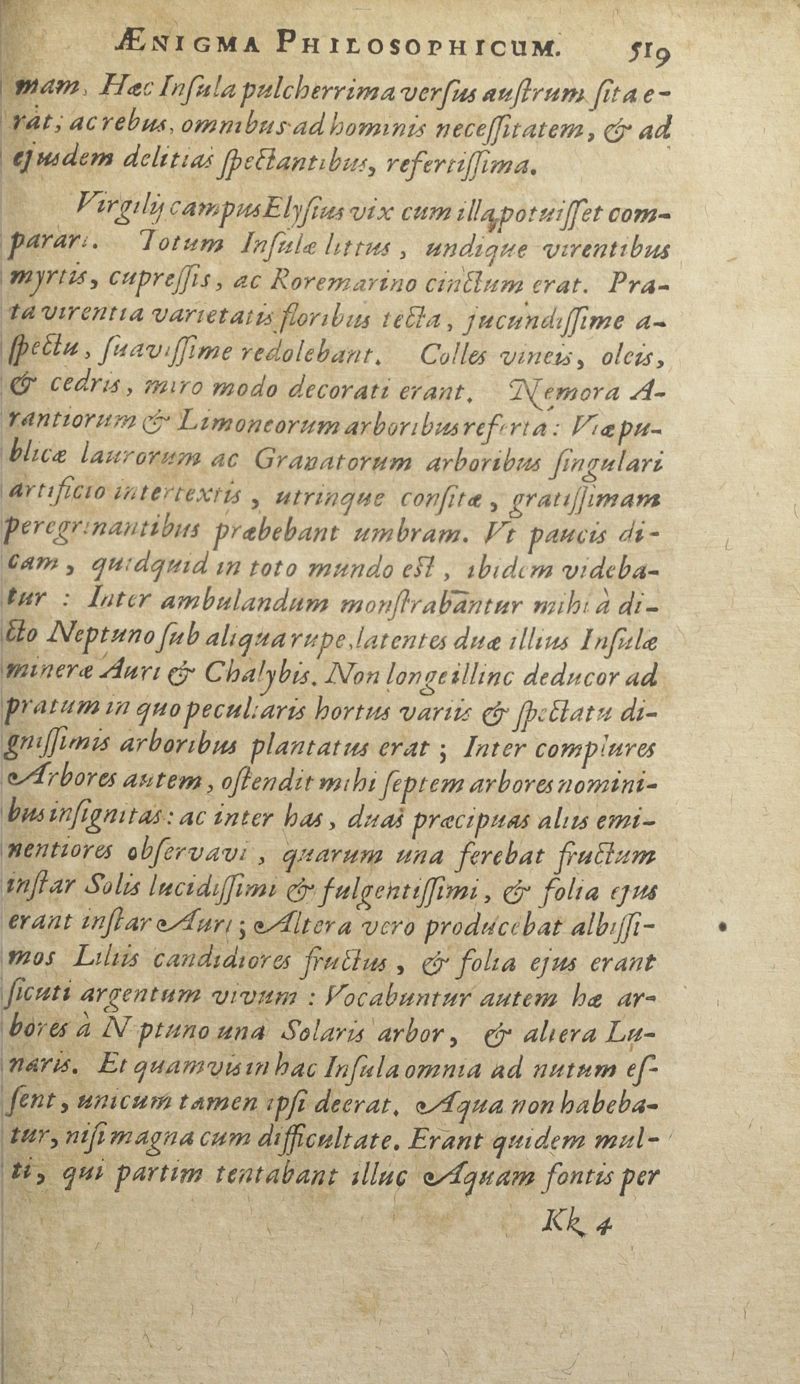 ÆNIGMA PHILOSOPHICUM. 519
mam, Hæc Insula pulcherrima versus austrum sita e-
rat; ac rebus, omnibus ad hominis necessitatem, & ad
ejusdem delitias spectantibus, refertissima.
Virgilij campus Elysius vix cum illaq; potuisset com-
parari. Totum Insulæ littus, undique virentibus
myrtis, cupressis, ac Roremarino cinctum erat. Pra-
ta virentia varietatis floribus tecta, jucundissime a-
spectu, suavissime redolebant. Colles vineis, oleis,
& cedris, miro modo decorati erant. Nemora A-
rantiorum & Limoneorum arboribus referta: Viæ pu-
blicæ laurorum ac Granatorum arboribus singulari
artificio intertextis, utrinque consitæ, gratissimam
peregrinantibus præbebant umbram. Vt paucis di-
cam, quidquid in toto mundo est, ibidem videba-
tur : Inter ambulandum monstrabantur mihi à di-
cto Neptuno sub aliqua rupe, latentes duæ illius Insulæ
mineræ Auri & Chalybis. Non longe illinc deducor ad
pratum in quo peculiaris hortus variis & spectatu di-
gnissimis arboribus plantatus erat ; Inter complures
Arbores autem, ostendit mihi septem arbores nomini-
bus insignitas: ac inter has, duas præcipuas aliis emi-
nentiores observavi, quarum una ferebat fructum
instar Solis lucidissimi & fulgentissimi, & folia ejus
erant instar Auri; Altera vero producebat albissi-
mos Liliis candidiores fructus, & folia ejus erant
sicuti argentum vivum : Vocabuntur autem hæ ar-
bores à N ptuno una Solaris arbor, & altera Lu-
naris. Et quamvis in hac Insula omnia ad nutum es-
sent, unicum tamen ipsi deerat. Aqua non habeba-
tur, nisi magna cum difficultate. Erant quidem mul-
ti, qui partim tentabant illuc Aquam fontis per
Kk 4